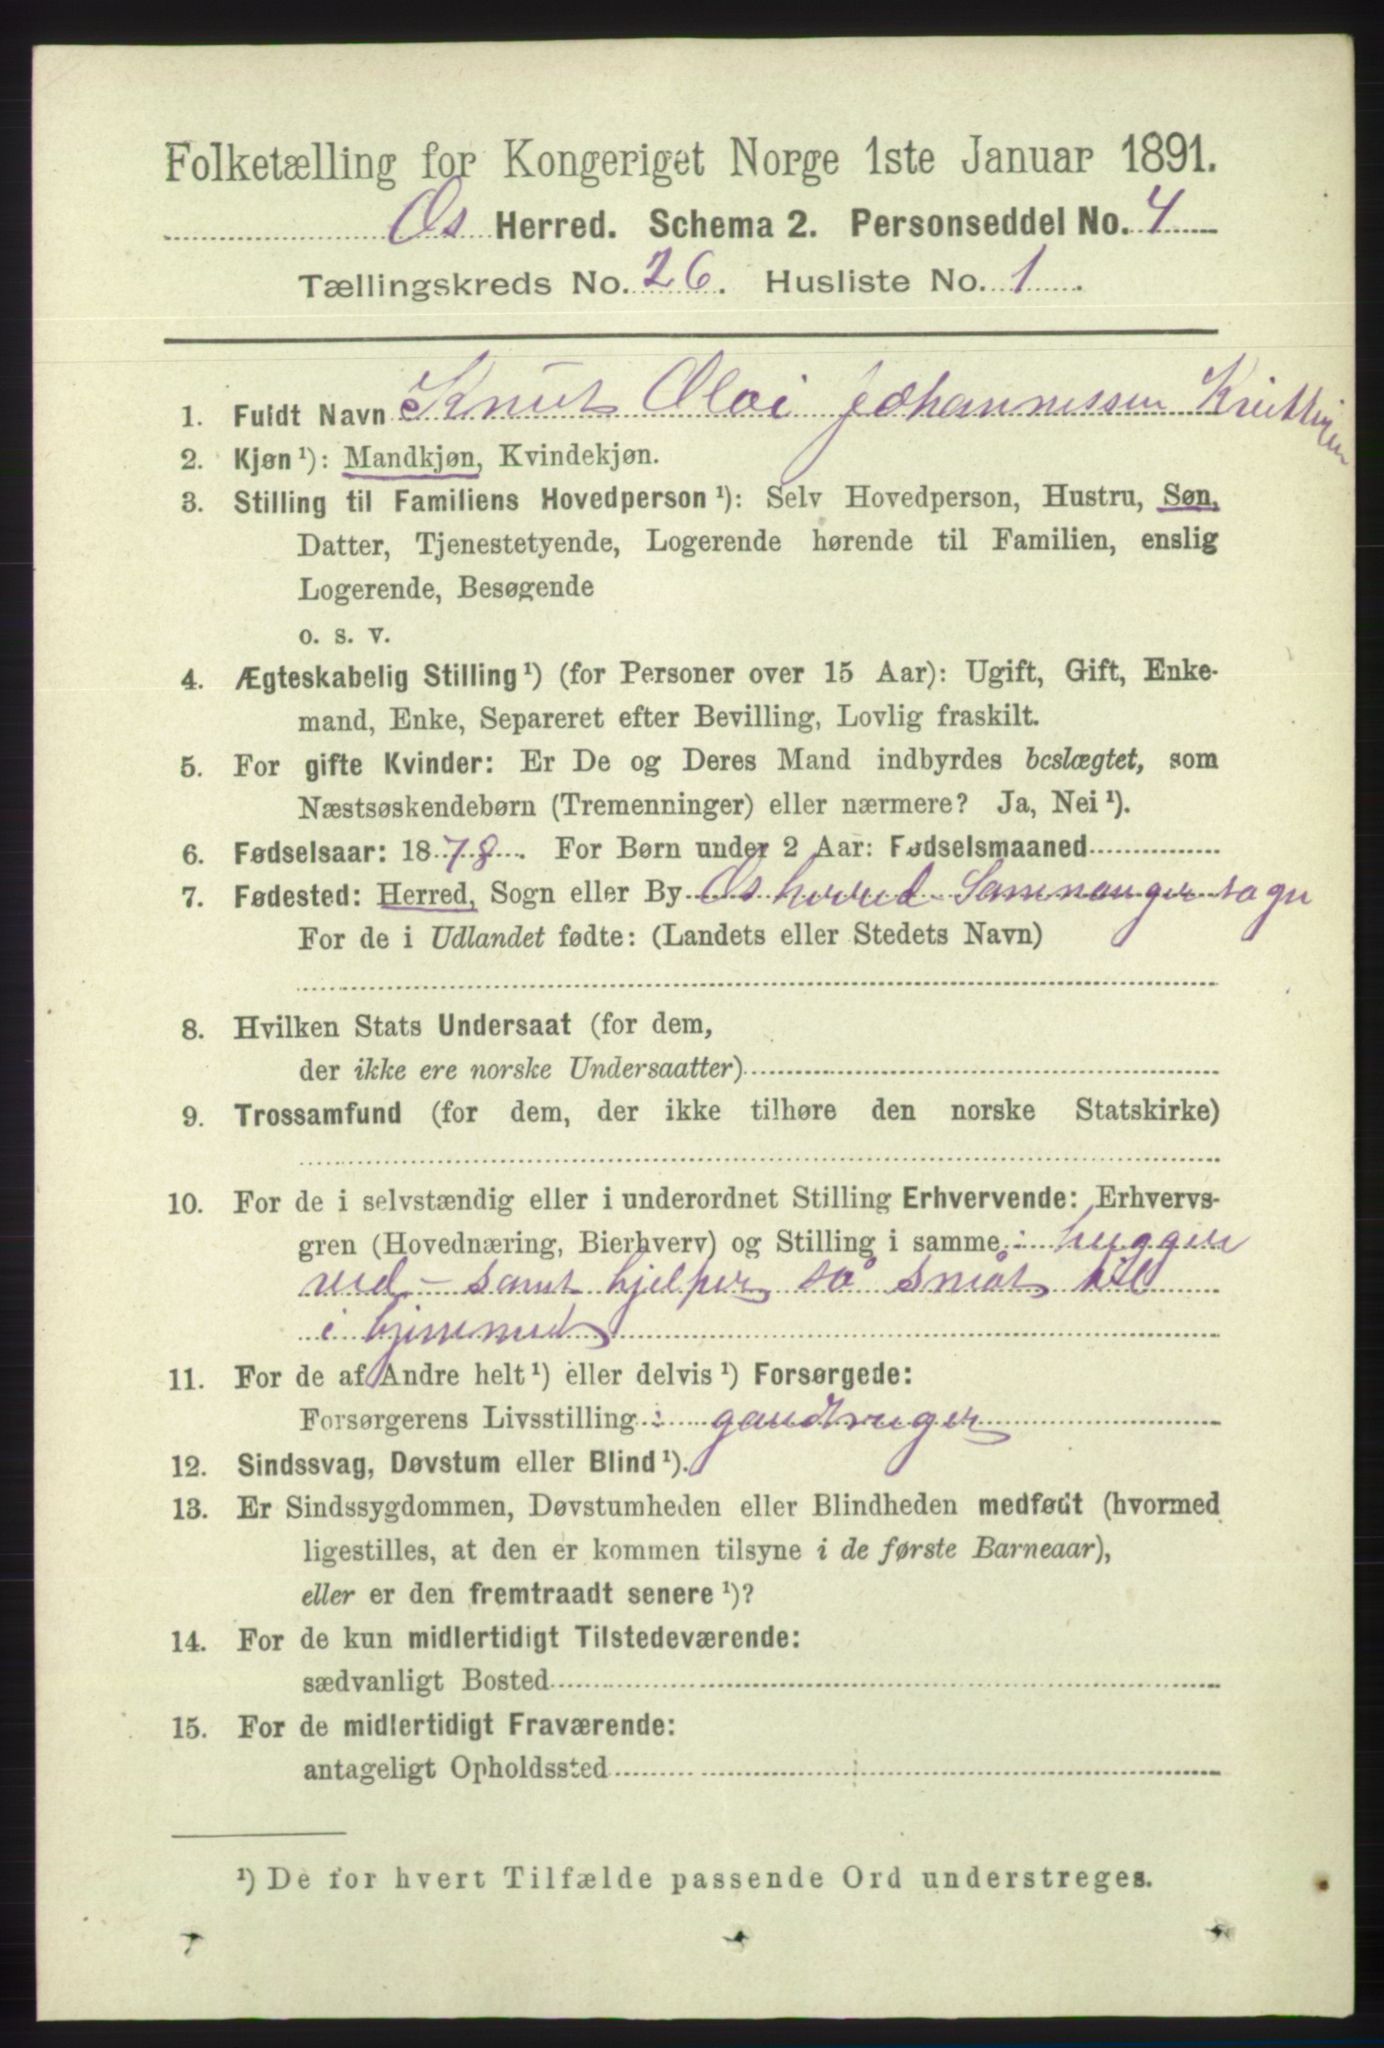 Folketælling for Kongeriget Norge 1ste Januar 1891.
Os Herred. Schema 2. Personseddel No. 4
Tællingskreds No. 26. Husliste No. 1.
1. Fuldt Navn Knut Olai Johannessen
2. Kjøn ¹): Mandkjøn, Kvindekjøn.
3. Stilling til Familiens Hovedperson ¹): Selv Hovedperson, Hustru, Søn,
Datter, Tjenestetyende, Logerende hørende til Familien, enslig
Logerende, Besøgende
o. s. v.
4. Ægteskabelig Stilling ¹) (for Personer over 15 Aar): Ugift, Gift, Enke-
mand, Enke, Separeret efter Bevilling, Lovlig fraskilt.
5. For gifte Kvinder: Er De og Deres Mand indbyrdes beslægtet, som
Næstsøskendebørn (Tremenninger) eller nærmere? Ja, Nei ¹).
6. Fødselsaar: 1878. For Børn under 2 Aar: Fødselsmaaned
7. Fødested: Herred, Sogn eller By Os herred - Samnanger sogn
For de i Udlandet fødte: (Landets eller Stedets Navn)
8. Hvilken Stats Undersaat (for dem,
der ikke ere norske Undersaatter)
9. Trossamfund (for dem, der ikke tilhøre den norske Statskirke)
10. For de i selvstændig eller i underordnet Stilling Erhvervende: Erhvervs-
gren (Hovednæring, Bierhverv) og Stilling i samme: hugger
ved - samt hjelper så småt til
i hjemmet
11. For de af Andre helt ¹) eller delvis ¹) Forsørgede:
Forsørgerens Livsstilling: gaardbruger
12. Sindssvag, Døvstum eller Blind ¹).
13. Er Sindssygdommen, Døvstumheden eller Blindheden medfødt (hvormed
ligestilles, at den er kommen tilsyne i de første Barneaar),
eller er den fremtraadt senere ¹)?
14. For de kun midlertidigt Tilstedeværende:
sædvanligt Bosted
15. For de midlertidigt Fraværende:
antageligt Opholdssted
¹) De for hvert Tilfælde passende Ord understreges.